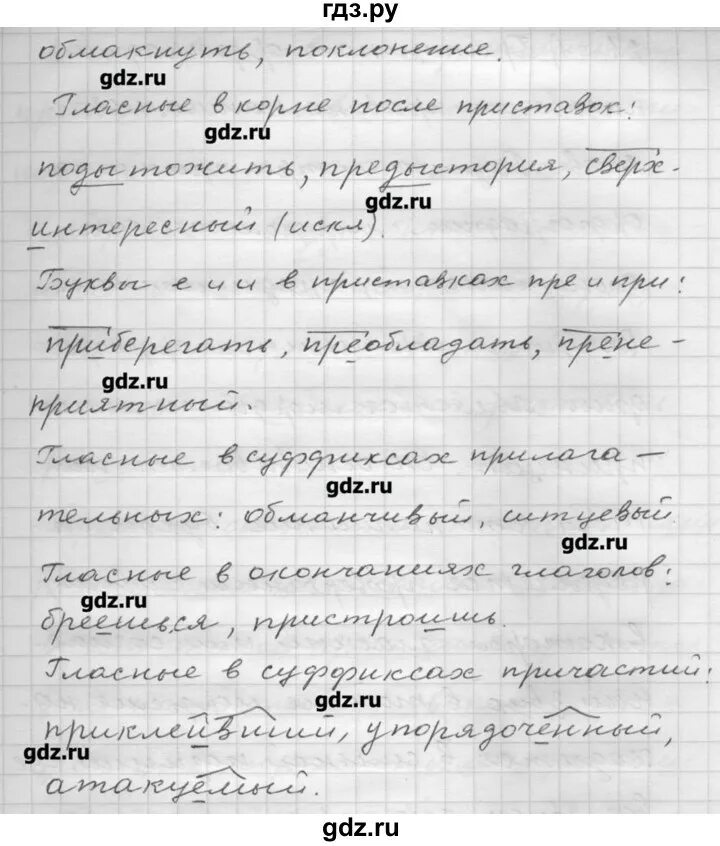 гдз.ру
обмакнуть, поклонение.
gdz.ru
Гласные в корне после приставок:
gdz.ru
подытожить, предыстория, сверх-
gdz.ru
интересный (искл).
Буквы е и и в приставках пре и при:
приберегать, преобладать, прене-
gdz.ru
приятный.
Гласные в суффиксах прилага-
gdz.ru
тельных: обманчивый, ситцевый.
gdz.ru
Гласные в окончаниях глаголов:
gdz.ru
бреешься, пристроишь.
Гласные в суффиксах причастий:
gdz.ru
приклеивший, упорядоченный,
gdz.ru
атакуемый.
gdz.ru